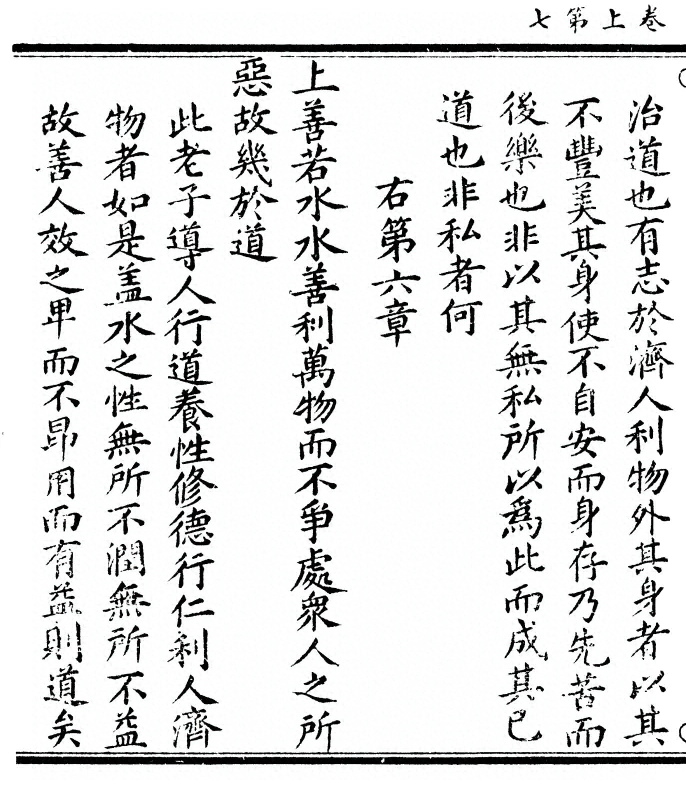 卷上第七
治道也有志於濟人利物外其身者以其
不豐美其身使不自安而身存乃先苦而
後樂也非以其無私所以爲此而成其己
道也非私者何
右第六章
上善若水水善利萬物而不爭處衆人之所
惡故幾於道
此老子導人行道養性修德行仁利人濟
物者如是盖水之性無所不潤無所不益
故善人效之卑而不昻用而有益則道矣